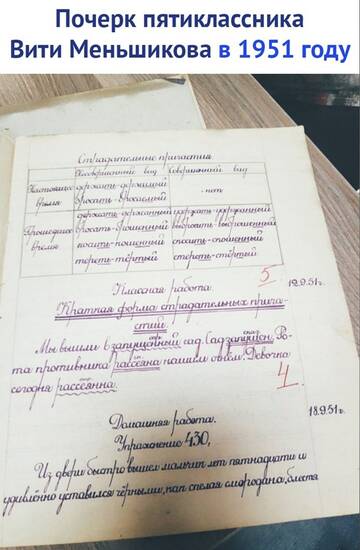 Почерк пятиклассника
Вити Меньшикова в 1951 году
Страдательные причастия
Несовершенный вид Совершенный вид
Настоящее держать-держимый нет
время бросать-бросаемый
Прошедшее держать-держанный удержать-удержанный
время бросать-брошенный выбросить-выброшенный
косить-кошенный скосить-скошенный
тереть-тёртый стереть-стёртый
5
Классная работа. 17.9.51г.
Краткая форма страдательных прича-
стий.
Мы вышли в запущенный сад. Сад запущен. Ро-
та противника рассеяна нашим огнём. Девочка
сегодня рассеянна.
4
Домашняя работа. 18.9.51г.
Упражнение 430.
Из двери быстро вышел мальчик лет пятнадцати и
удивлённо уставился чёрными, как спелая смородина, блестя